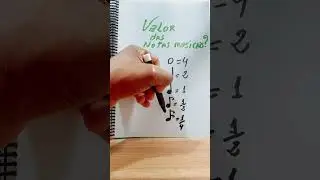 Valor
das
Notas musicais?
0 = 4
= 2
= 1
= 1/2
= 1/4